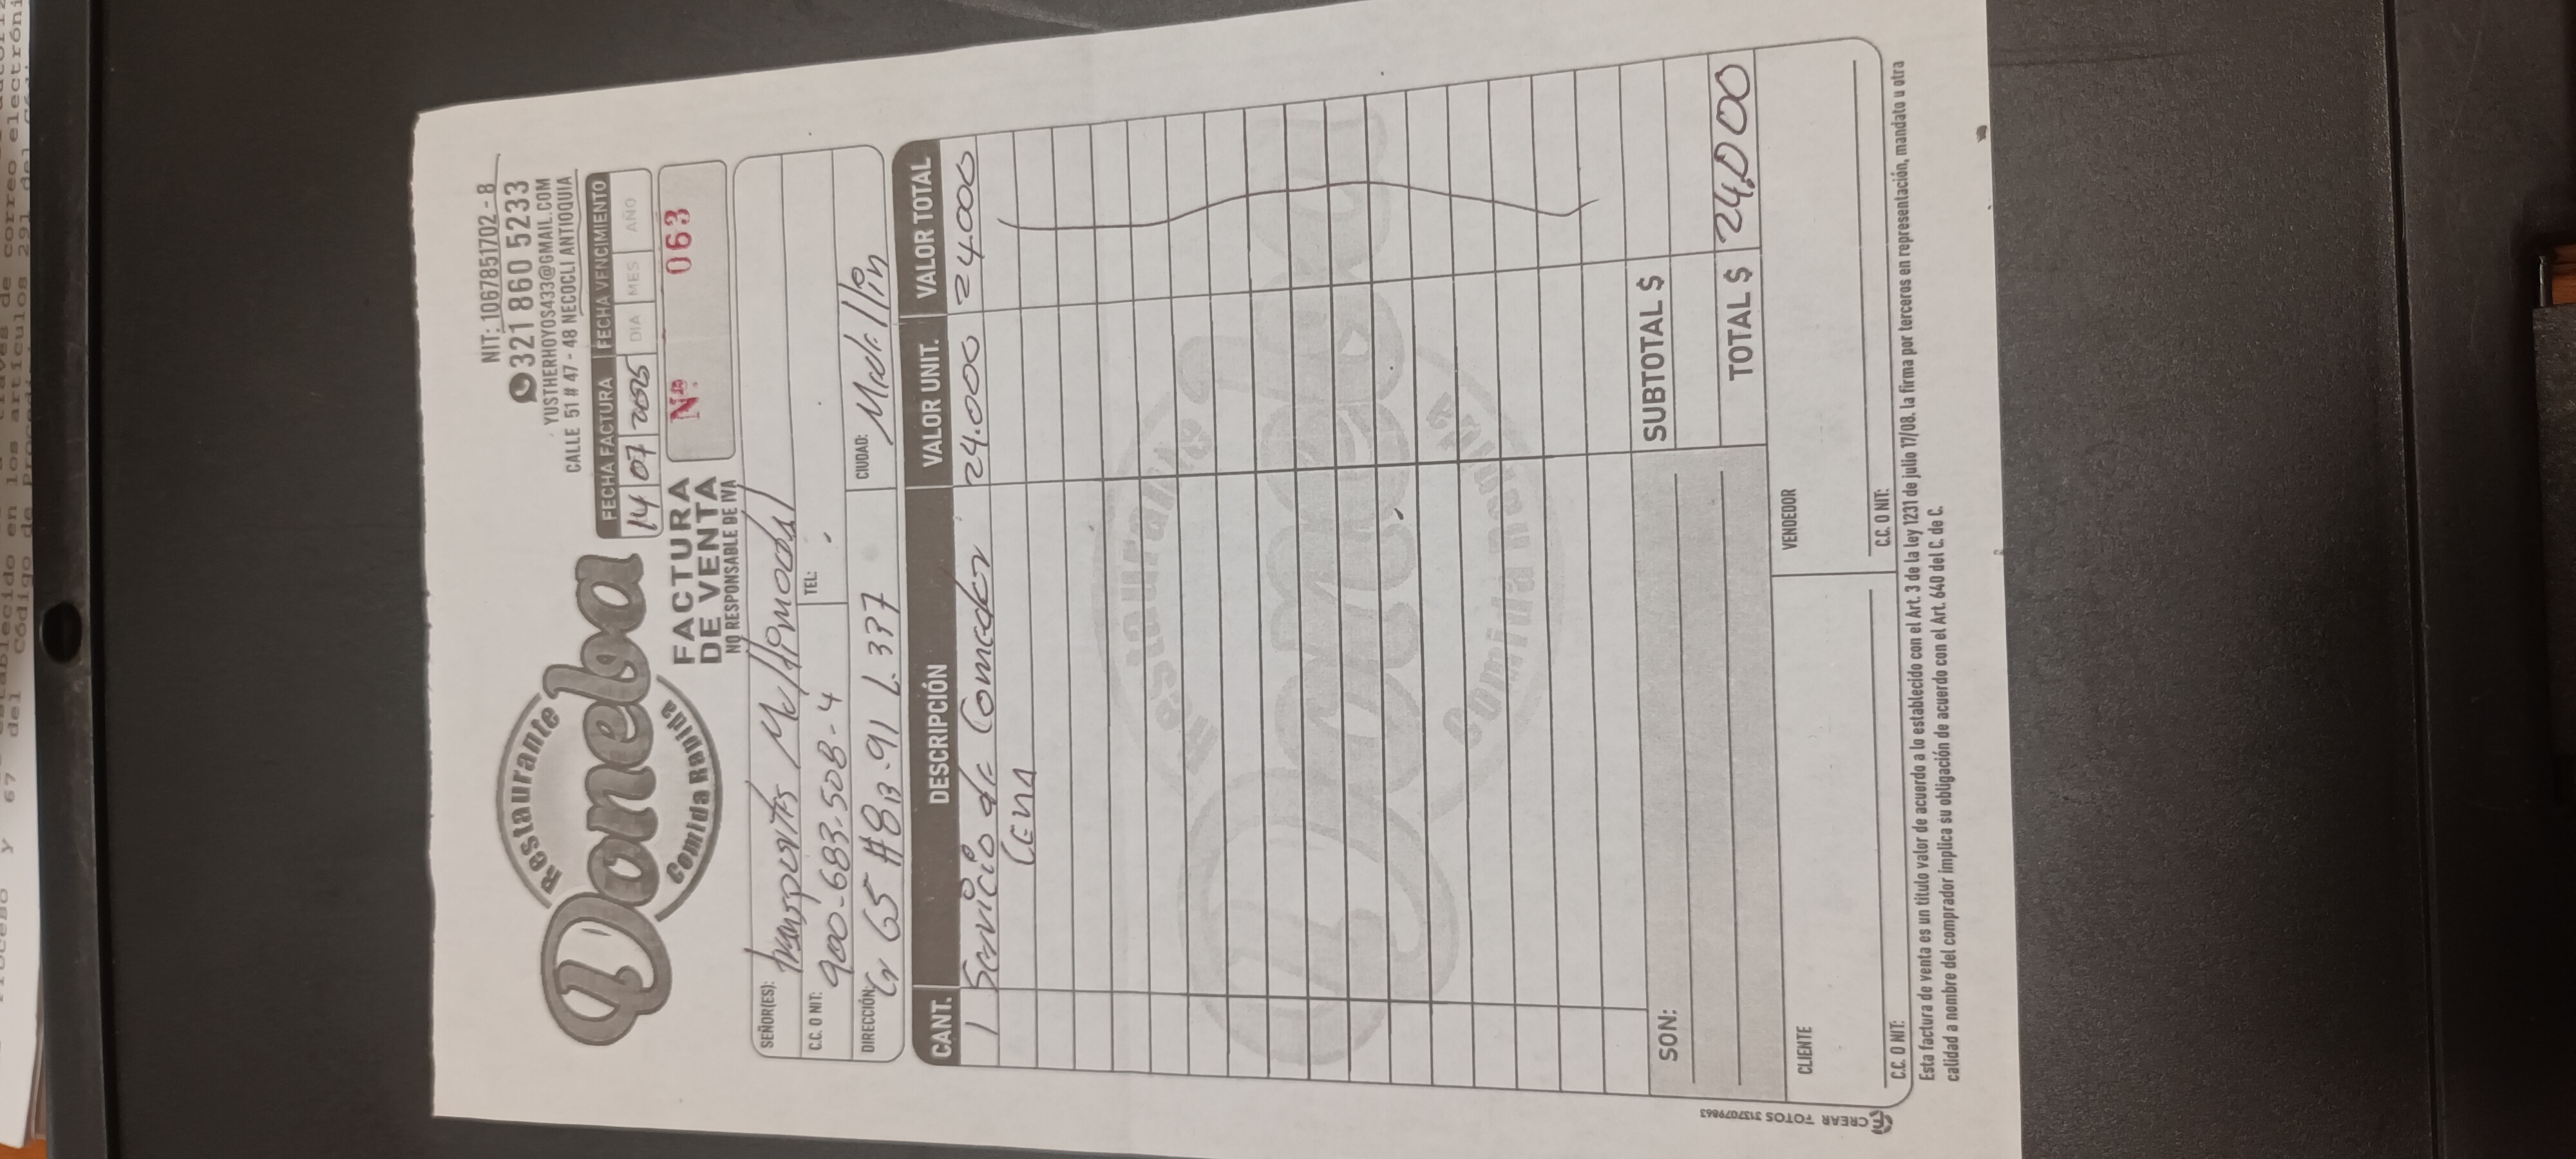 Restaurante
Doneloa
Comida Rapida
NIT: 1067851702 - 8
321 860 5233
YUSTHERHOYOS433@GMAIL.COM
CALLE 51 # 47 - 48 NECOCLI ANTIOQUIA
FECHA FACTURA FECHA VENCIMIENTO
14 07 2025 DIA MES AÑO
FACTURA
DE VENTA
NO RESPONSABLE DE IVA
Nº 063
SEÑOR(ES): Transportes Multimodal
C.C. O NIT: 900-683-508-4 TEL:
DIRECCIÓN: Cr 65 #8B-91 L. 337 CIUDAD: Medellin
CANT. DESCRIPCIÓN VALOR UNIT. VALOR TOTAL
1 Servicio de Comedor 24.000 24.000
Cena
Restaurante
Comida Rapida
SON: SUBTOTAL $
TOTAL $ 24,000
CLIENTE VENDEDOR
C.C. O NIT: C.C. O NIT:
Esta factura de venta es un titulo valor de acuerdo a lo establecido con el Art. 3 de la ley 1231 de julio 17/08. la firma por terceros en representación, mandato u otra
calidad a nombre del comprador implica su obligación de acuerdo con el Art. 640 del C. de C.
CREAR FOTOS 3137079863